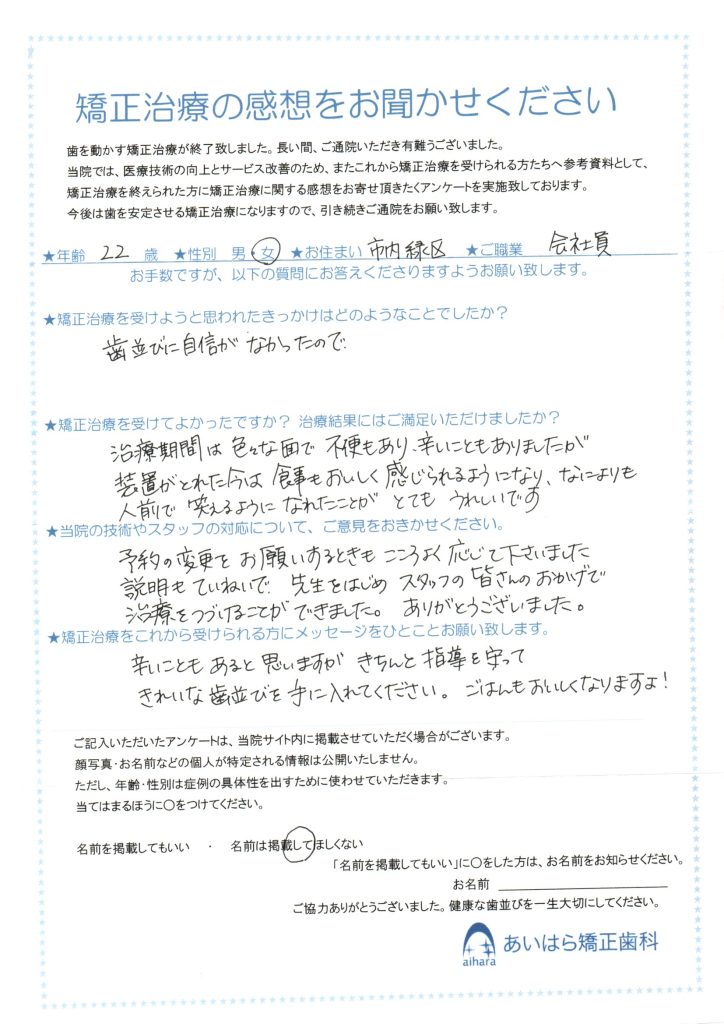 矯正治療の感想をお聞かせください
歯を動かす矯正治療が終了致しました。長い間、ご通院いただき有難うございました。
当院では、医療技術の向上とサービス改善のため、またこれから矯正治療を受けられる方たちへ参考資料として、
矯正治療を終えられた方に矯正治療に関する感想をお寄せ頂きたくアンケートを実施致しております。
今後は歯を安定させる矯正治療になりますので、引き続きご通院をお願い致します。
★年齢 22 歳 ★性別 男・女 ★お住まい 市内緑区 ★ご職業 会社員
お手数ですが、以下の質問にお答えくださりますようお願い致します。
★矯正治療を受けようと思われたきっかけはどのようなことでしたか?
歯並びに自信がなかったので
★矯正治療を受けてよかったですか? 治療結果にはご満足いただけましたか?
治療期間は色々な面で不便もあり、辛いこともありましたが
装置がとれた今は食事もおいしく感じられるようになり、なによりも
人前で笑えるようになれたことがとてもうれしいです
★当院の技術やスタッフの対応について、ご意見をおきかせください。
予約の変更をお願いするときもこころよく応じて下さいました
説明もていねいで、先生をはじめスタッフの皆さんのおかげで
治療をつづけることができました。ありがとうございました。
★矯正治療をこれから受けられる方にメッセージをひとことお願い致します。
辛いこともあると思いますがきちんと指導を守って
きれいな歯並びを手に入れてください。ごはんもおいしくなりますよ!
ご記入いただいたアンケートは、当院サイト内に掲載させていただく場合がございます。
顔写真・お名前などの個人が特定される情報は公開いたしません。
ただし、年齢・性別は症例の具体性を出すために使わせていただきます。
当てはまるほうに○をつけてください。
名前を掲載してもいい ・ 名前は掲載してほしくない
「名前を掲載してもいい」に○をした方は、お名前をお知らせください。
お名前
ご協力ありがとうございました。健康な歯並びを一生大切にしてください。
aihara あいはら矯正歯科